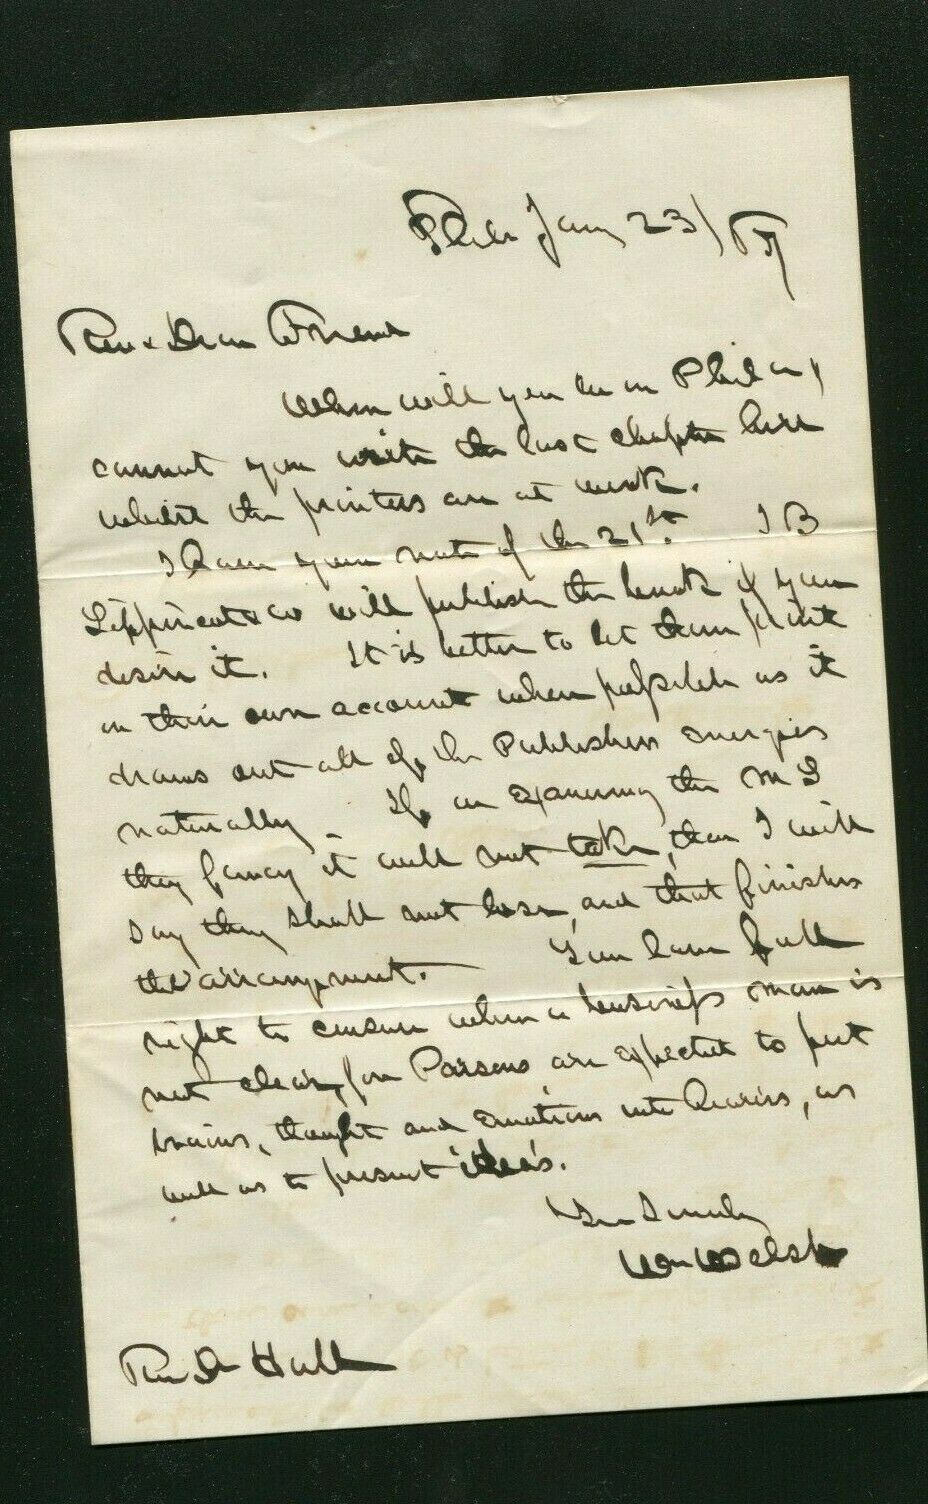 Phila Jany 23/57
Rev & Dear Friend
When will you be in Phila,
cannot you write the last chapter here
whilst the printers are at work.
I have your note of the 21st. J B
Lippincott & co will publish the book if you
desire it. It is better to let them print
on their own account when possible as it
draws out all of the Publishers energies
naturally – If on examining the MS
they fancy it will not take, then I will
say they shall not lose, and that finishes
the arrangement. – You have full
right to censure when a business man is
not clear, for Parsons are expected to put
brains, thought and emotions into hearers, as
well as to present ideas.
Yrs Truly
Wm Welsh
Rev Dr Hall